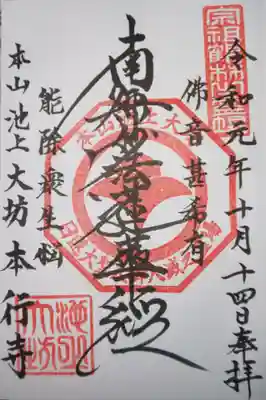 令和元年十月十四日奉拝
佛音甚希有
南無妙法蓮華経
能除衆生悩
本山池上大坊本行寺